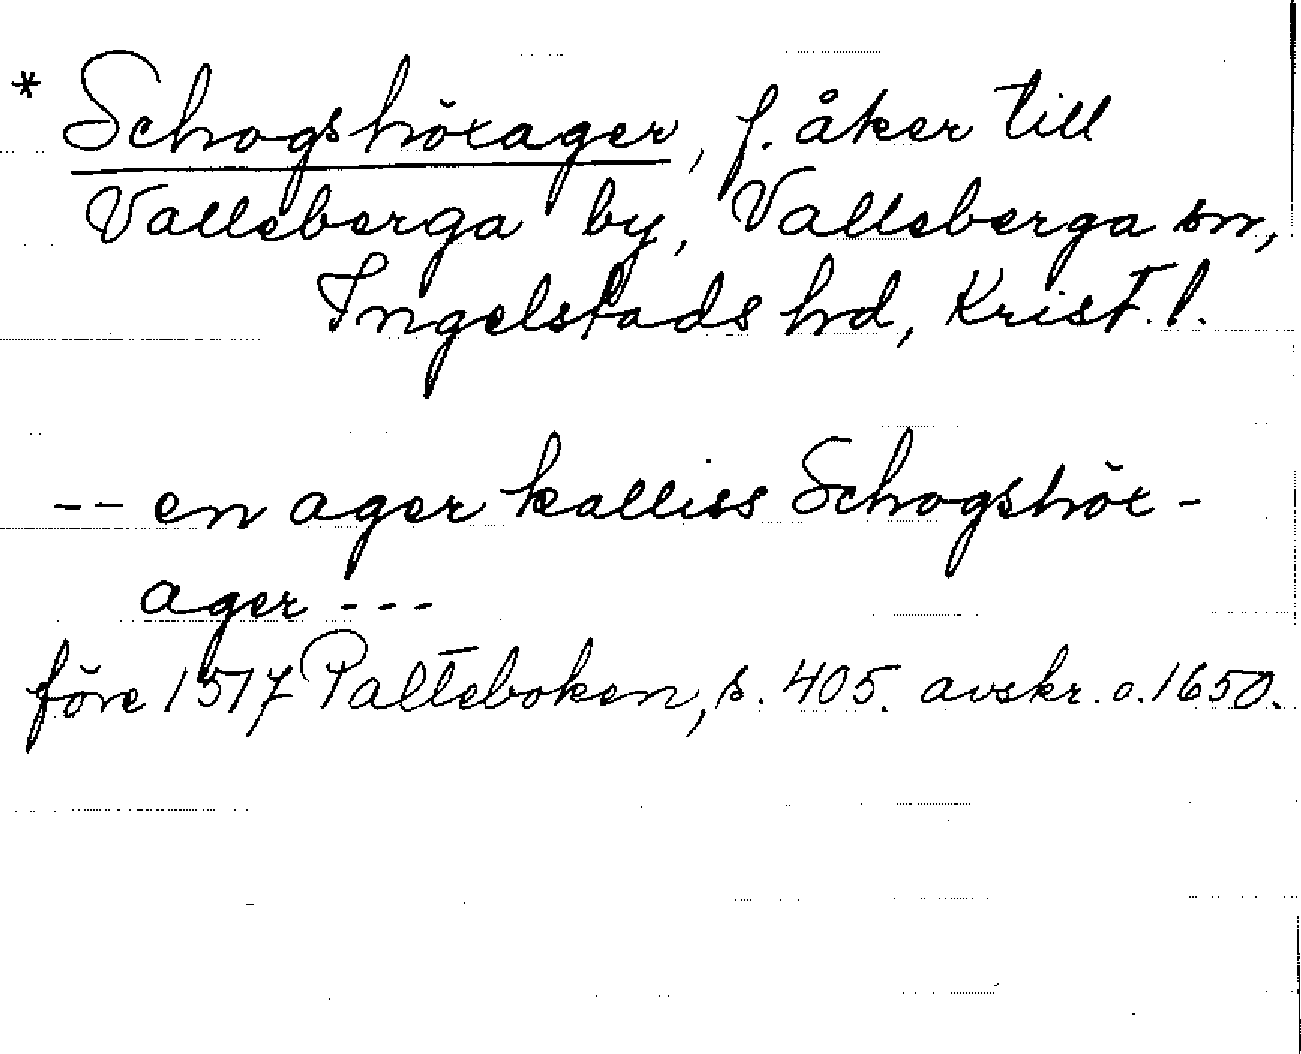 * Schogshöxager, f. åker till
Valleberga by, Valleberga sn,
Ingelstads hd, Krist. l.
-- en ager kalliss Schogshöx-
ager ---
före 1517 Palteboken, s. 405. avskr. o. 1650.